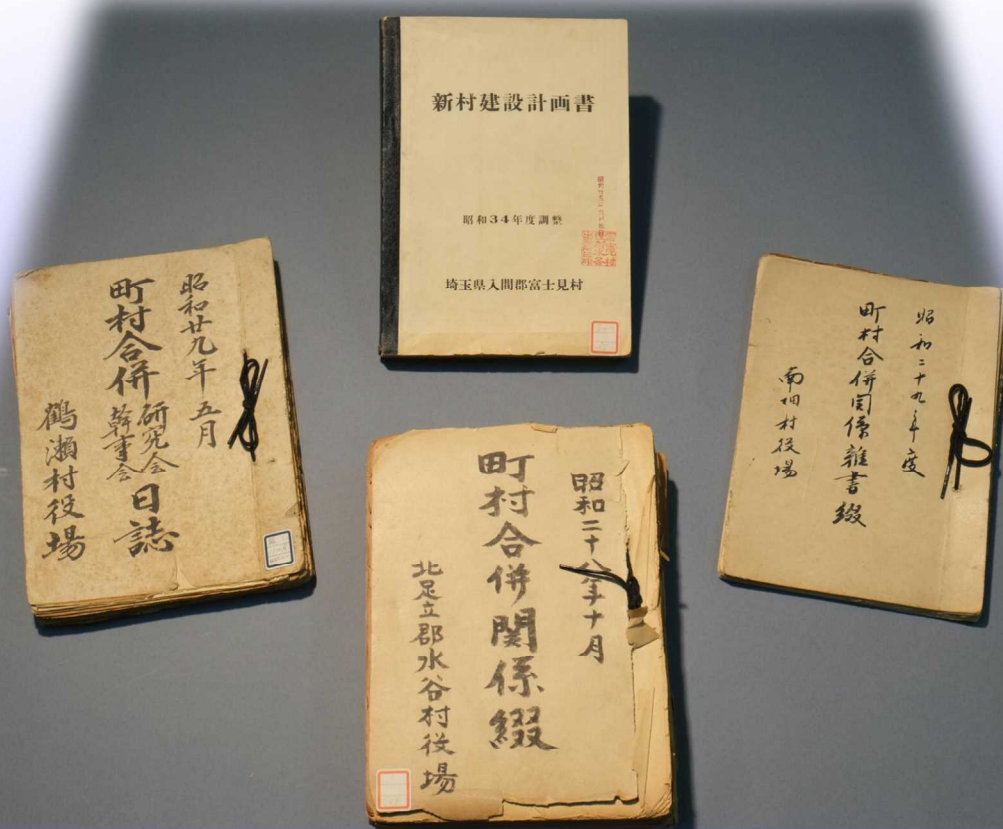 新村建設計画書
昭和34年度調整
埼玉県入間郡富士見村
昭和廿九年 五月
町村合併研究会幹事会日誌
鶴瀬村役場
昭和二十八年十月
町村合併関係綴
北足立郡水谷村役場
昭和二十九年度
町村合併関係雑書綴
南畑村役場